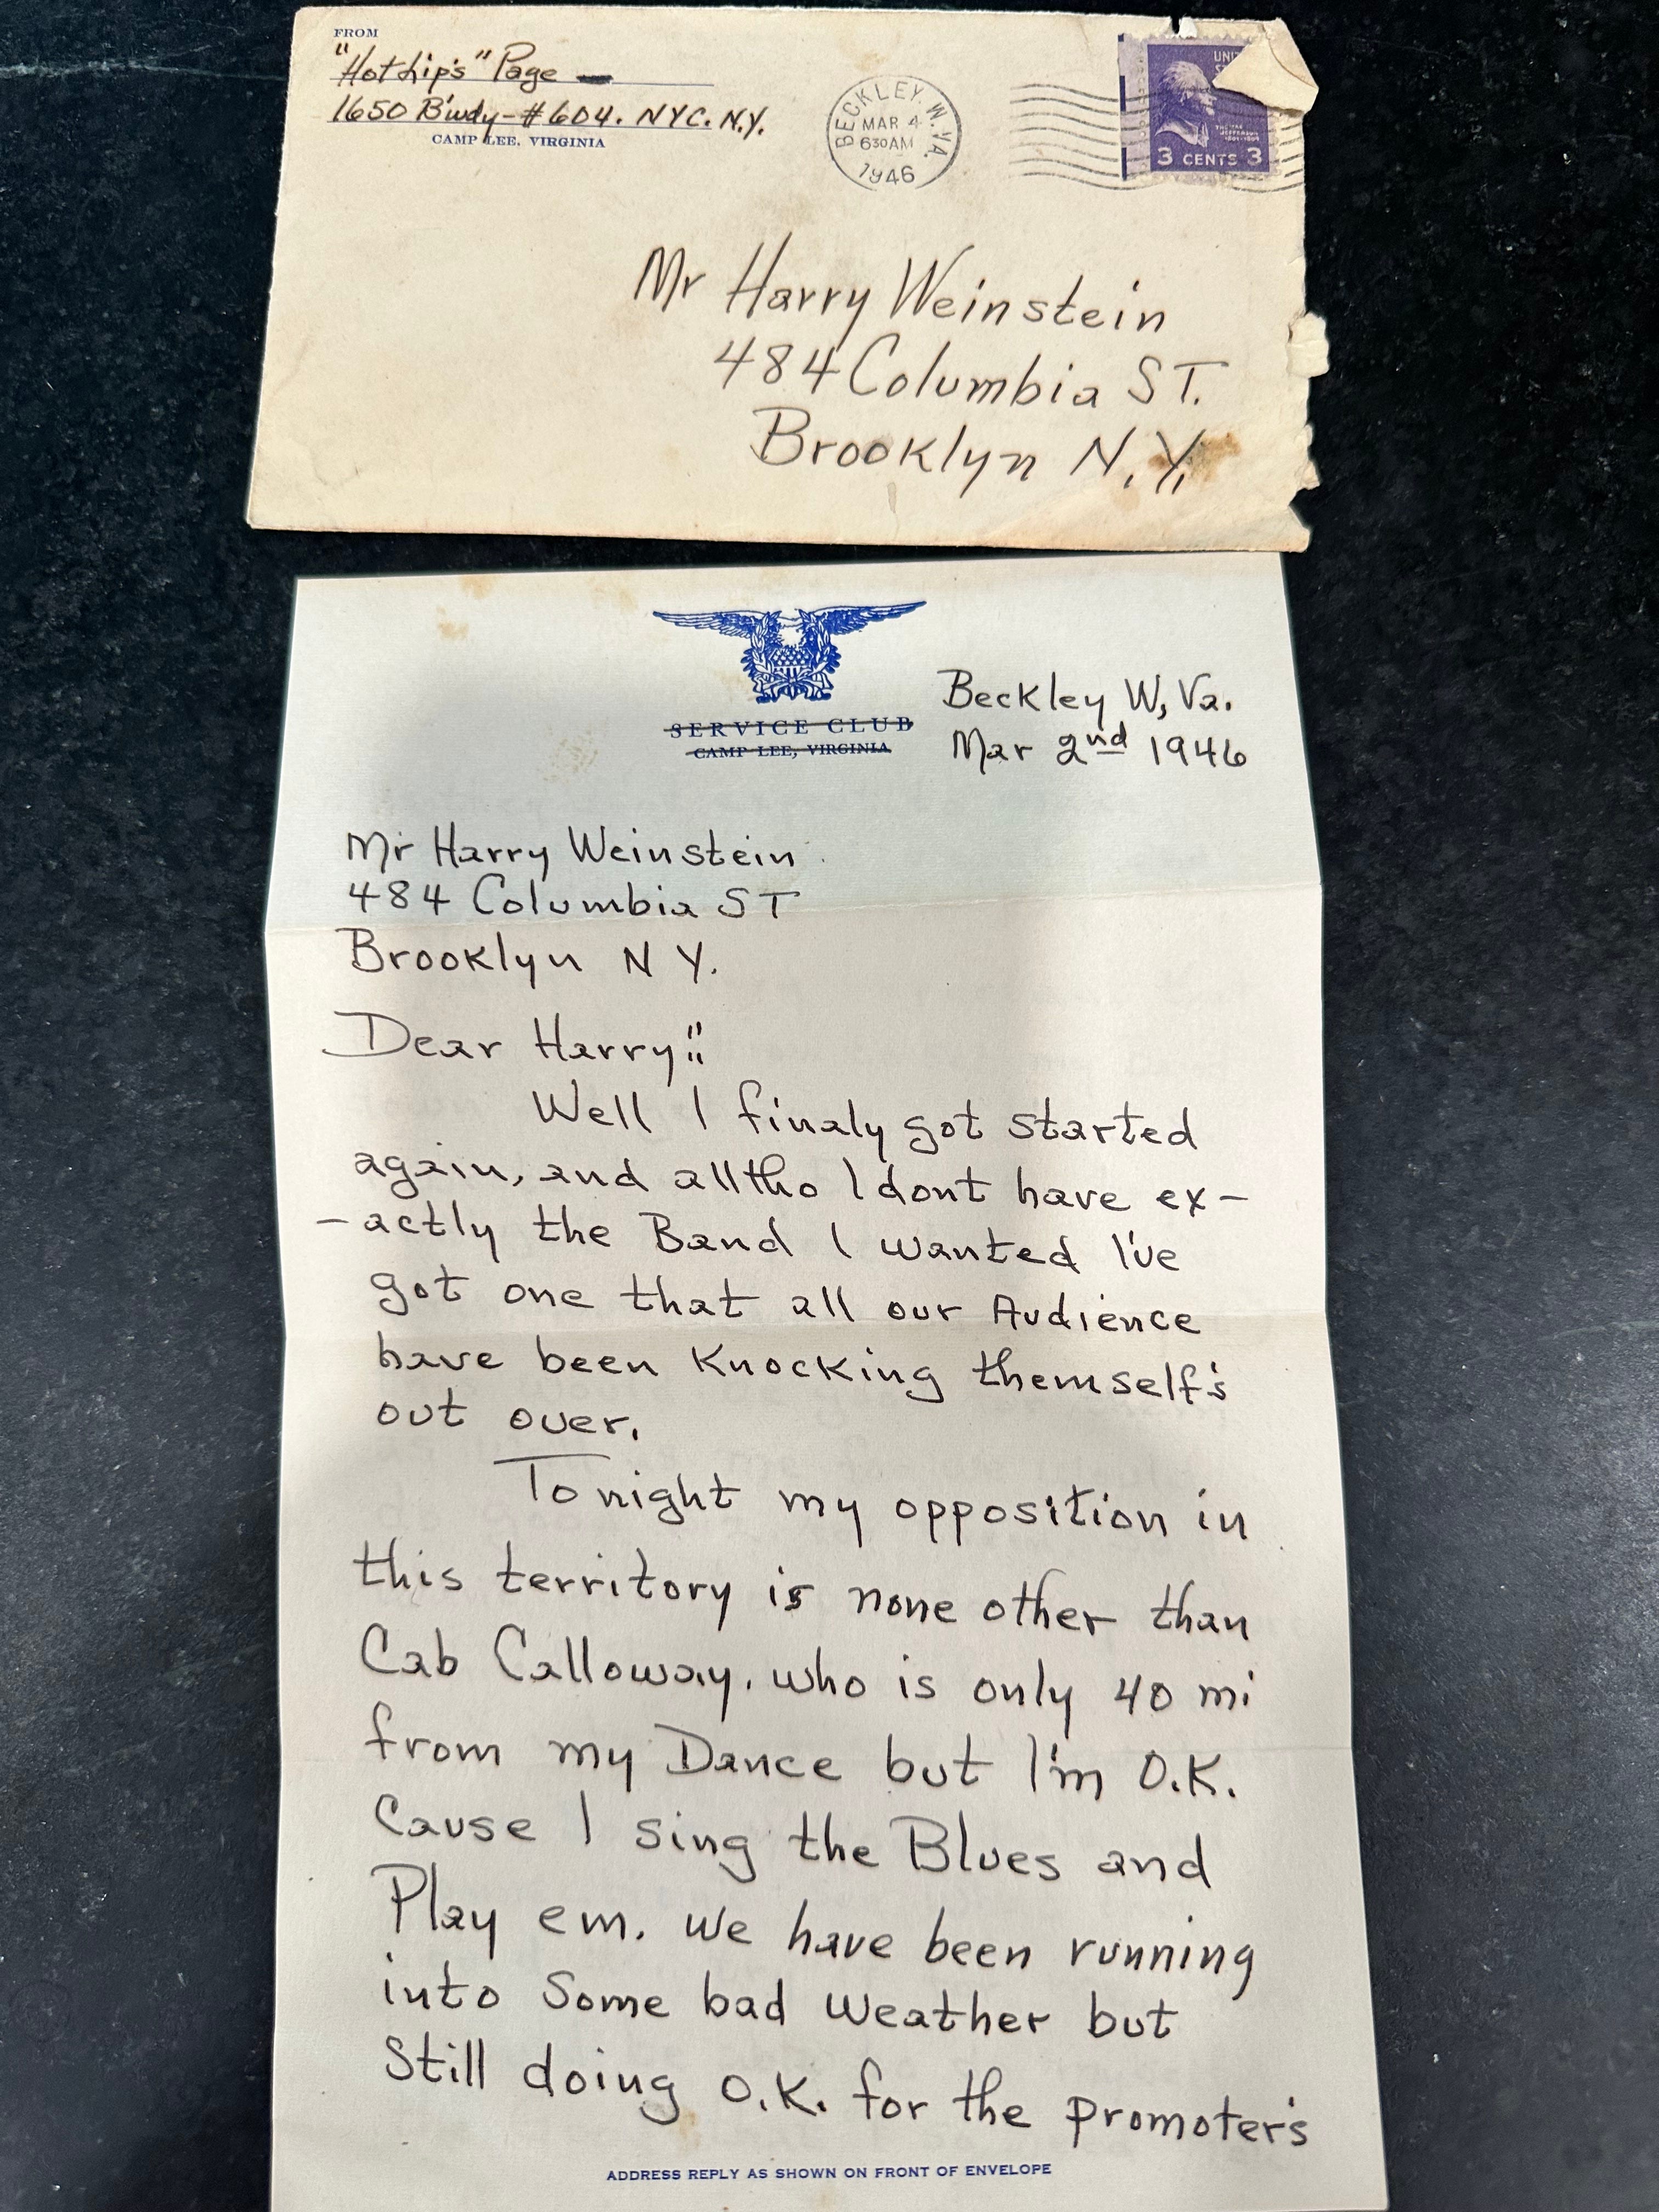 FROM
"Hot Lip's" Page —
1650 B'wdy - #604. NYC. N.Y.
CAMP LEE, VIRGINIA
BECKLEY. W. VA.
MAR 4
630AM
1946
UNI
THOMAS
JEFFERSON
1801-1809
3 CENTS 3
Mr Harry Weinstein
484 Columbia ST.
Brooklyn N.Y.
SERVICE CLUB
CAMP LEE, VIRGINIA
Beckley W, Va.
Mar 2nd 1946
Mr Harry Weinstein
484 Columbia ST
Brooklyn N Y.
Dear Harry;;
Well I finaly got started
again, and alltho I dont have ex-
-actly the Band I wanted I've
got one that all our Audience
have been Knocking themself's
out over.
Tonight my opposition in
this territory is none other than
Cab Calloway. who is only 40 mi
from my Dance but I'm O.K.
Cause I sing the Blues and
Play em. We have been running
into Some bad weather but
Still doing O.K. for the promoter's
ADDRESS REPLY AS SHOWN ON FRONT OF ENVELOPE